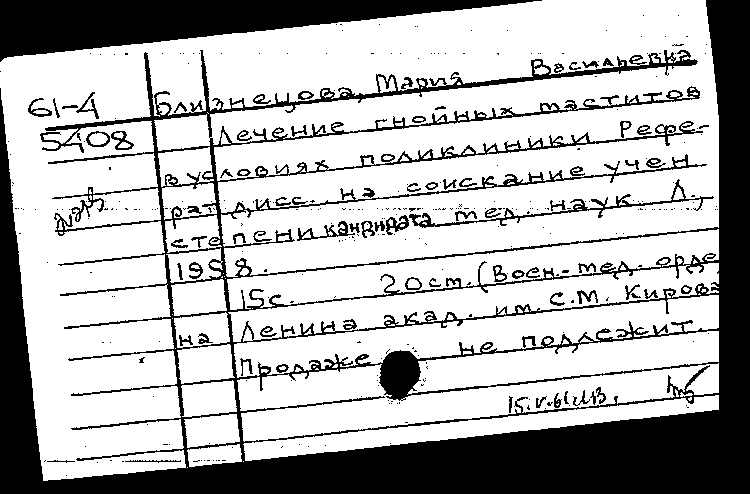 61-4
5408
Близнецова, Мария Васильевна
Лечение гнойных маститов
в условиях поликлиники Рефе-
рат дисс. на соискание учен
степени кандидата мед. наук Л.,
1958.
15с. 20см. (Воен.-мед. орде
на Ленина акад. им. С.М. Кирова
Продаже не подлежит.
15.V.61.